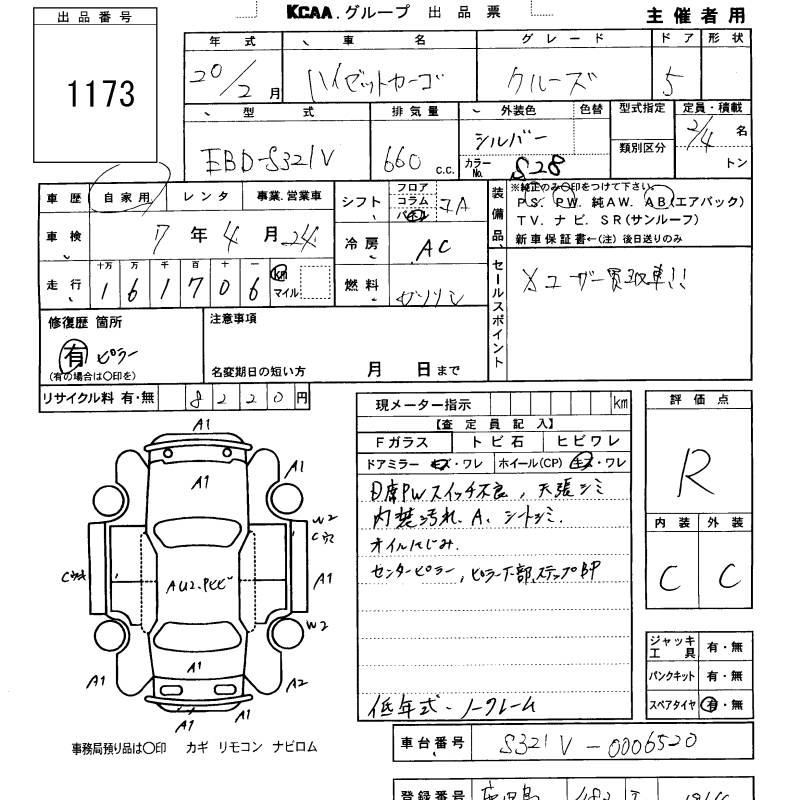 出品番号
1173
KCAA.グループ 出品票
主催者用
年式 車名 グレード ドア 形状
20/2月 ハイゼットカーゴ クルーズ 5
型式 排気量 外装色 色替 型式指定 定員・積載
EBD-S321V 660 c.c. シルバー カラーNo. S28 類別区分 2/4 名 トン
車歴 自家用 レンタ 事業.営業車
車検 7年4月24
走行 十万 万 千 百 十 一
161706 km マイル
シフト フロア コラム パネル IA
冷房 AC
燃料 ガソリン
装備品 ※純正のみ〇印をつけて下さい。
PS. PW. 純AW. AB(エアバック)
TV. ナビ. SR(サンルーフ)
新車保証書←(注)後日送りのみ
セールスポイント
※ユーザー買取車!!
修復歴 箇所
有 ピラー
(有の場合は〇印を)
注意事項
名変期日の短い方 月 日まで
リサイクル料 有・無 8220円
現メーター指示 km
【査定員記入】
Fガラス トビ石 ヒビワレ
ドアミラー キズ・ワレ ホイール(CP) キズ・ワレ
D席PWスイッチ不良, 天張シミ
内装汚れ、A、シートシミ.
オイルにじみ.
センターピラー, ピラー下部,ステップBP
低年式・ノークレーム
評価点
R
内装 外装
C C
ジャッキ工具 有・無
パンクキット 有・無
スペアタイヤ 有・無
A1
A1
A1
W2
A1
W2
A1
A1
A2
A1
A1
事務局預り品は〇印 カギ リモコン ナビロム
車台番号 S321V-0006520
登録番号 鹿児島